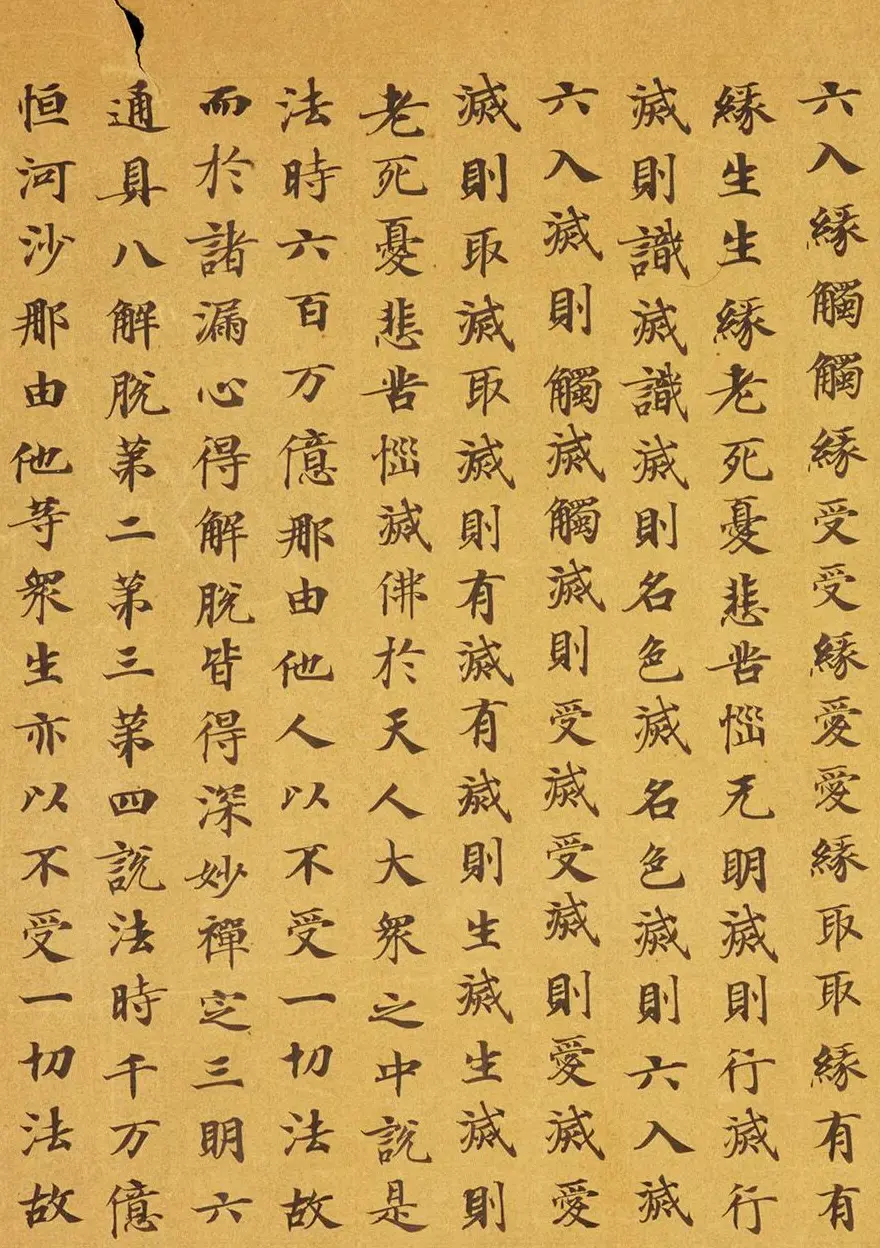 六入緣觸觸緣受受緣愛愛緣取取緣有有
緣生生緣老死憂悲苦惱无明滅則行滅行
滅則識滅識滅則名色滅名色滅則六入滅
六入滅則觸滅觸滅則受滅受滅則愛滅愛
滅則取滅取滅則有滅有滅則生滅生滅則
老死憂悲苦惱滅佛於天人大眾之中說是
法時六百万億那由他人以不受一切法故
而於諸漏心得解脫皆得深妙禪定三明六
通具八解脫第二第三第四說法時千万億
恒河沙那由他等眾生亦以不受一切法故